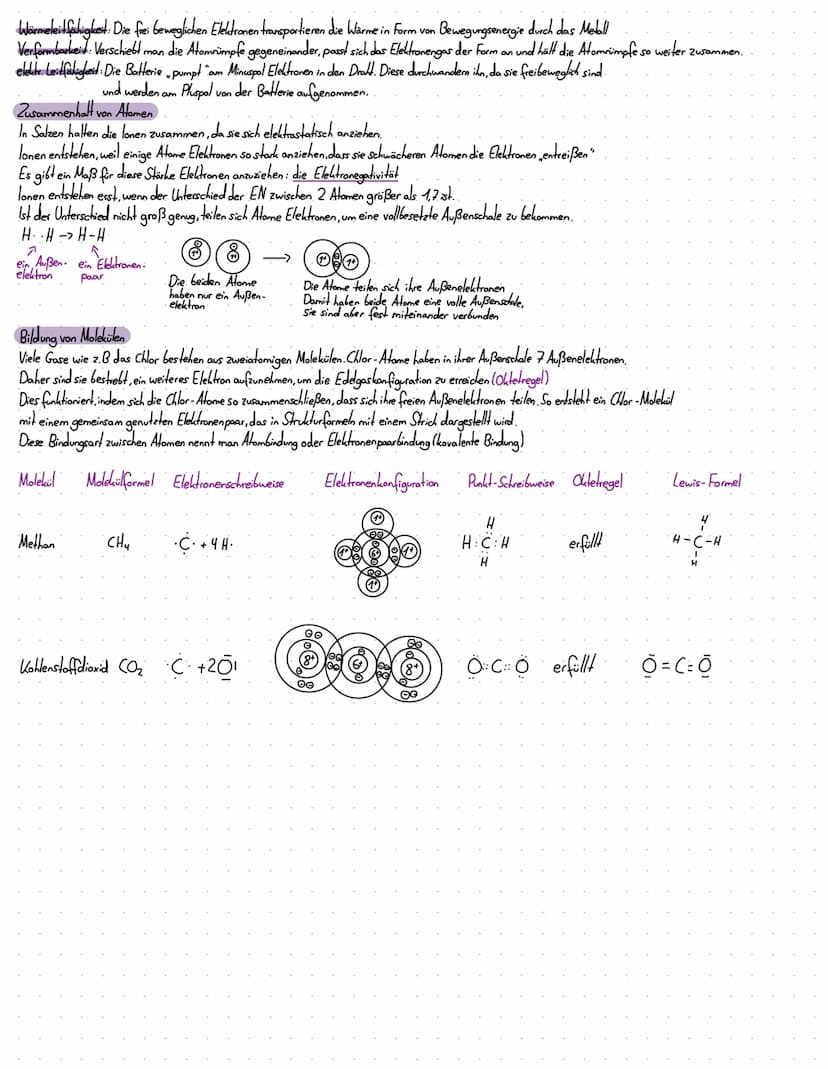 Wärmeleitfähigkeit: Die frei beweglichen Elektronen transportieren die Wärme in Form von Bewegungsenergie durch das Metall
Verformbarkeit: Verschiebt man die Atomrümpfe gegeneinander, passt sich das Elektronengas der Form an und hält die Atomrümpfe so weiter zusammen.
elektr. Leitfähigkeit: Die Batterie „pumpt" am Minuspol Elektronen in den Draht. Diese durchwandern ihn, da sie frei beweglich sind
und werden am Pluspol von der Batterie aufgenommen.
Zusammenhalt von Atomen
In Salzen halten die Ionen zusammen, da sie sich elektrostatisch anziehen.
Ionen entstehen, weil einige Atome Elektronen so stark anziehen, dass sie schwächeren Atomen die Elektronen „entreißen"
Es gibt ein Maß für diese Stärke Elektronen anzuziehen: die Elektronegativität
Ionen entstehen erst, wenn der Unterschied der EN zwischen 2 Atomen größer als 1,7 ist.
Ist der Unterschied nicht groß genug, teilen sich Atome Elektronen, um eine vollbesetzte Außenschale zu bekommen.
H· ·H → H-H
ein Außen-
elektron
ein Elektronen-
paar
1+ 1+ → 1+ 1+
Die beiden Atome
haben nur ein Außen-
elektron
Die Atome teilen sich ihre Außenelektronen
Damit haben beide Atome eine volle Außenschale,
sie sind aber fest miteinander verbunden
Bildung von Molekülen
Viele Gase wie z.B das Chlor bestehen aus zweiatomigen Molekülen. Chlor-Atome haben in ihrer Außenschale 7 Außenelektronen.
Daher sind sie bestrebt, ein weiteres Elektron aufzunehmen, um die Edelgaskonfiguration zu erreichen (Oktetregel)
Dies funktioniert, indem sich die Chlor-Atome so zusammenschließen, dass sich ihre freien Außenelektronen teilen. So entsteht ein Chlor-Molekül
mit einem gemeinsam genutzten Elektronenpaar, das in Strukturformeln mit einem Strich dargestellt wird.
Diese Bindungsart zwischen Atomen nennt man Atombindung oder Elektronenpaarbindung (kovalente Bindung)
Molekül Molekülformel Elektronenschreibweise Elektronenkonfiguration Punkt-Schreibweise Oktetregel Lewis-Formel
1+ H H
Methan CH₄ ·Ċ· + 4 H· 1+ 6+ 1+ H:C̈:H erfüllt H-C-H
1+ H H
Kohlenstoffdioxid CO₂ ·Ċ· + 2O̅| 8+ 6+ 8+ Ö::C::Ö erfüllt O̅=C=O̅